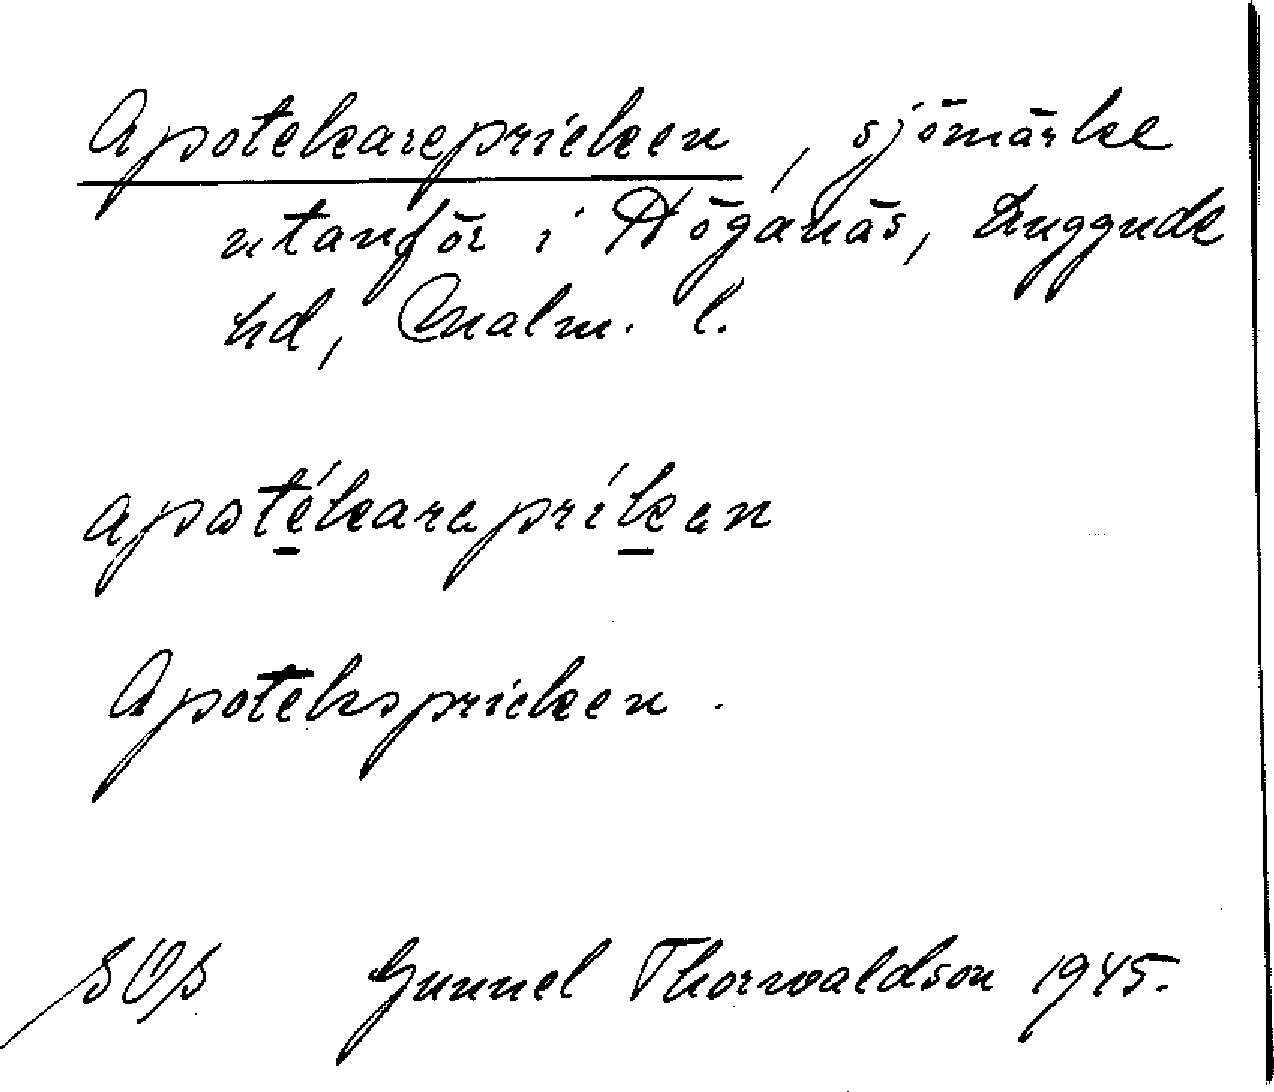 Apotekarepricken, sjömärke
utanför i Höganäs, Luggude
hd, Malm. l.
apotékarepríken
Apotekspricken.
SOS Gunnel Thorwaldson 1945.